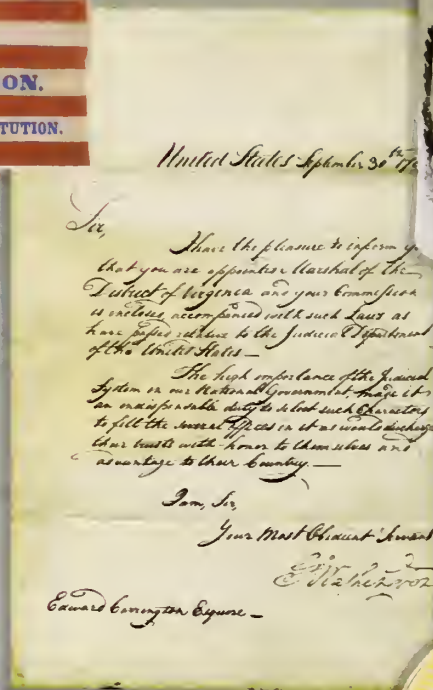 ON.
TUTION.
United States September 30th 17
Sir,
I have the pleasure to inform y
that you are appointed Marshal of the
District of Virginia and your Commission
is inclosed accompanied with such Laws as
have passed relative to the Judicial Department
of the United States—
The high importance of the Judicial
System in our National Government, made it
an indispensable duty to select such Characters
to fill the several offices in it as would discharge
their trusts with honor to themselves and
advantage to their Country.—
I am, Sir,
Your Most Obedient Servant
Edward Carrington Esquire—